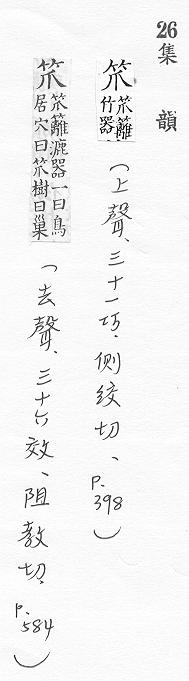 26
集韻
笊 笊籬竹器 (上聲、三十一巧、側絞切、P.398)
笊 笊籬漉器一曰鳥居穴曰笊樹曰巢 (去聲、三十六效、阻教切、P.584)